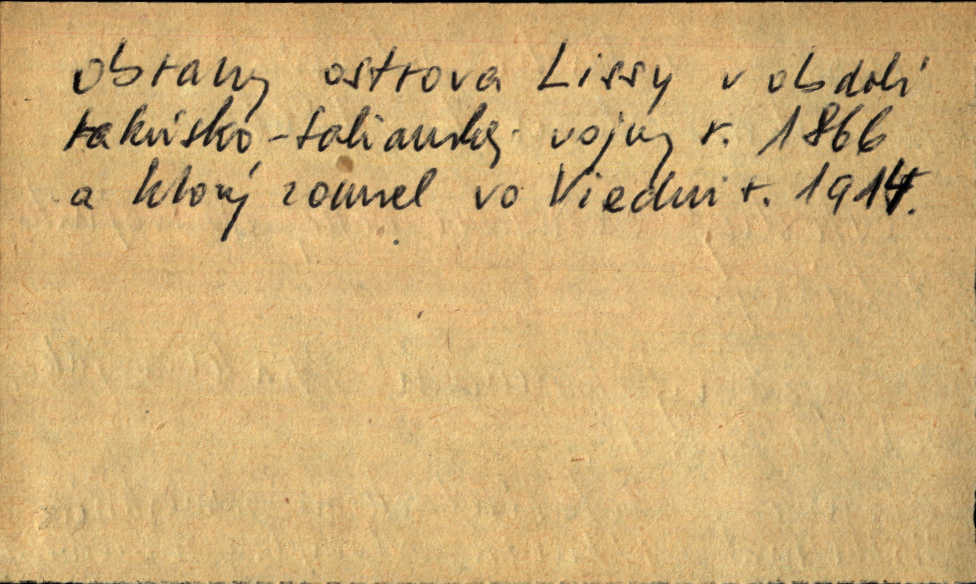 obrany ostrova Lissy v období
rakúsko-talianskej vojny r. 1866
a ktorý zomrel vo Viedni r. 1914.